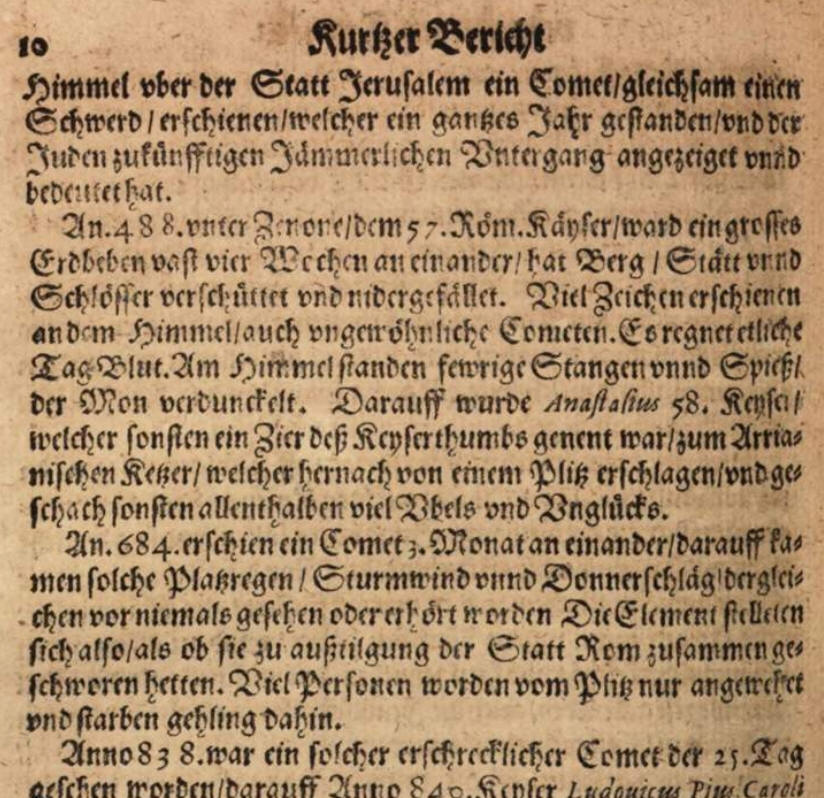 10 Kurtzer Bericht
Himmel vber der Statt Jerusalem ein Comet/gleichsam einen
Schwerd/erschienen/welcher ein gantzes Jahr gestanden/vnd der
Juden zukünfftigen Jämmerlichen Vntergang angezeiget vnnd
bedeutet hat.
An. 488. vnter Zenone/dem 57. Röm. Käyser/ward ein grosses
Erdbeben vast vier Wochen an einander/hat Berg/Stätt vnnd
Schlösser verschüttet vnd nidergefället. Viel Zeichen erschienen
an dem Himmel/auch vngewöhnliche Cometen. Es regnet etliche
Tag Blut. Am Himmel standen fewrige Stangen vnnd Spieß/
der Mon verdunckelt. Darauff wurde Anastasius 58. Keyser/
welcher sonsten ein Zier deß Keyserthumbs genent war/zum Arria-
nischen Ketzer/welcher hernach von einem Plitz erschlagen/vnd ge-
schach sonsten allenthalben viel Vbels vnd Vnglücks.
An. 684. erschien ein Comet 3. Monat an einander/darauff ka-
men solche Platzregen/Sturmwind vnnd Donnerschläg/derglei-
chen vor niemals gesehen oder erhört worden Die Element stelleten
sich also/als ob sie zu außtilgung der Statt Rom zusammen ge-
schworen hetten. Viel Personen worden vom Plitz nur angewehet
vnd starben gehling dahin.
Anno 838. war ein solcher erschrecklicher Comet der 25. Tag
gesehen worden/darauff Anno 840. Keyser Ludouicus Pius Caroli